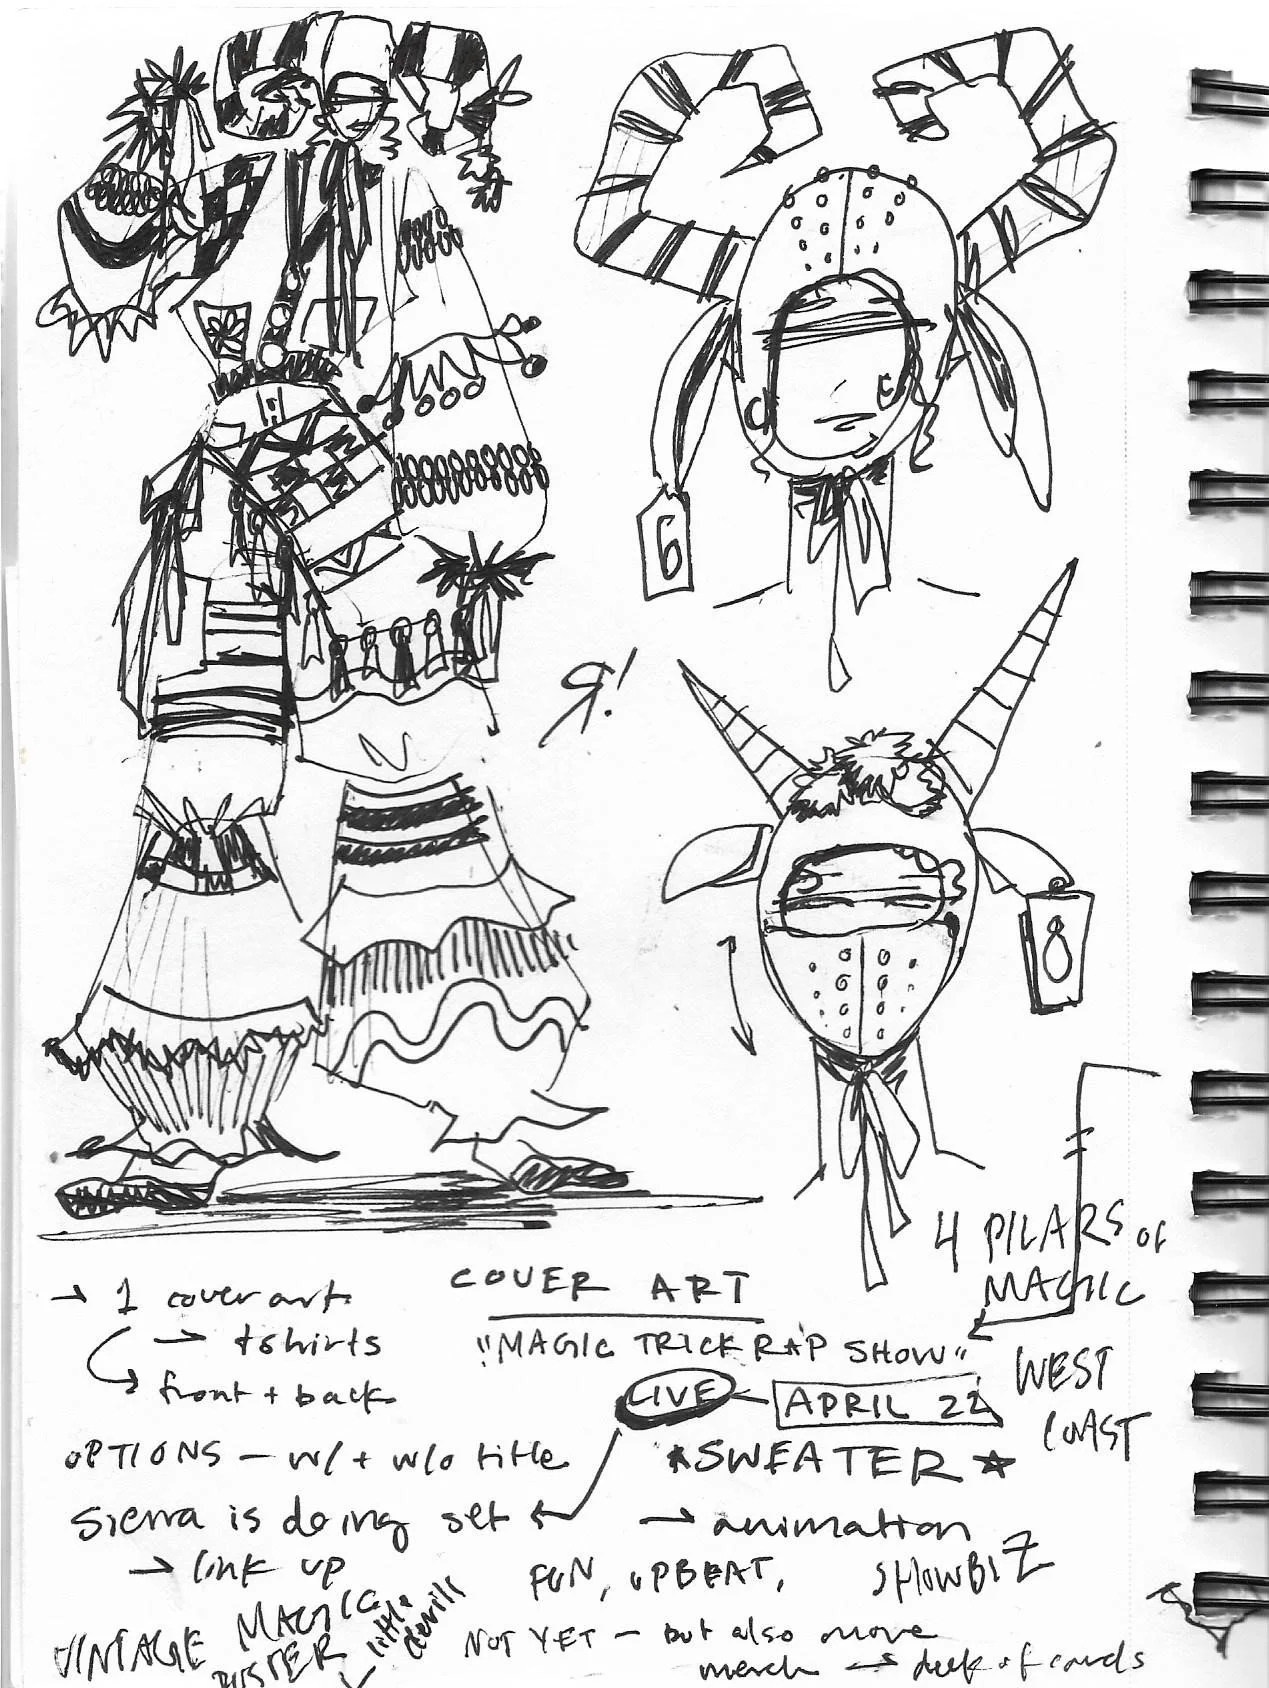 6
Я!
8
4 PILARS OF
MAGIC
WEST
COAST
COVER ART
"MAGIC TRICK RAP SHOW"
LIVE — APRIL 22
*SWEATER*
→ 1 cover art
→ tshirts
→ front + back
OPTIONS — w/ + w/o title
Sierra is doing set
→ link up
→ animation
FUN, UPBEAT, SHOWBIZ
VINTAGE MAGIC
POSTER
little
devils
NOT YET — but also more
merch → deck of cards